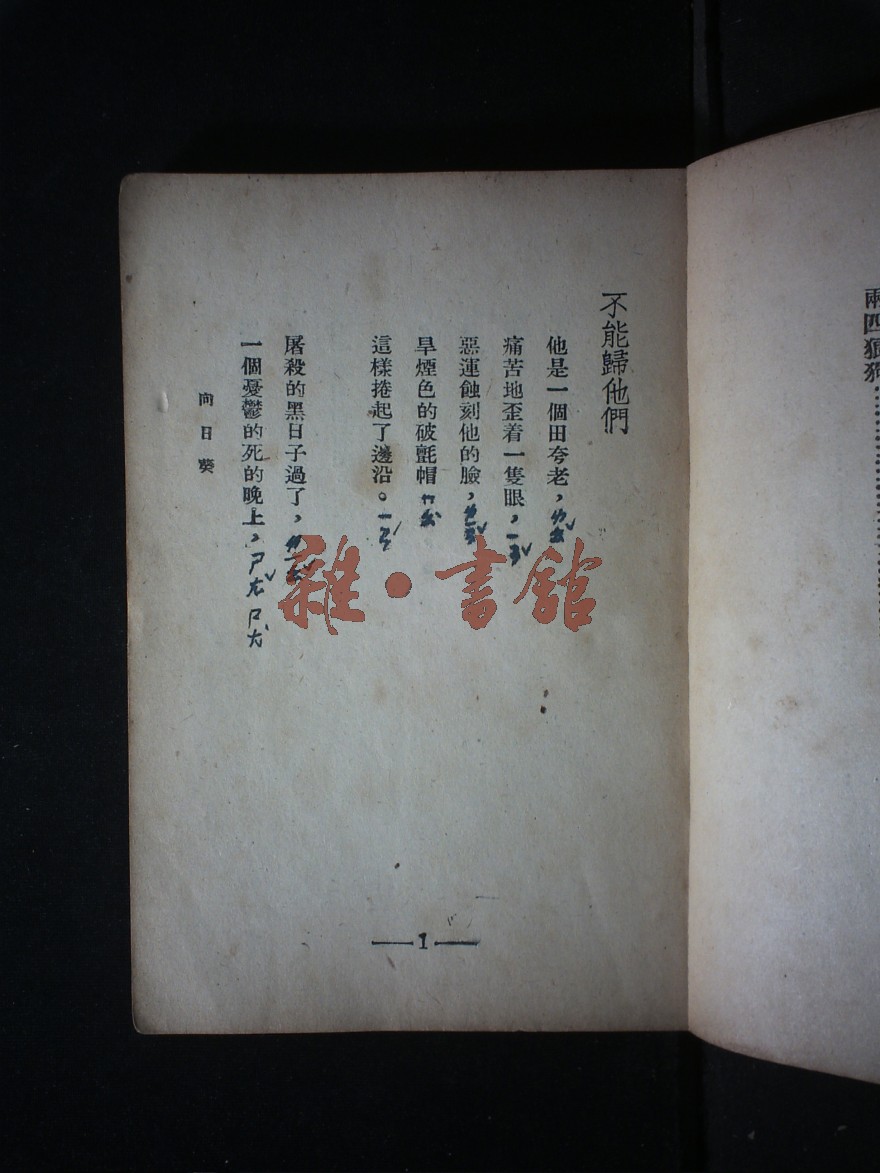 兩匹猿狗
不能歸他們
他是一個田夸老，ㄌㄠˇ
痛苦地歪着一隻眼，ㄧㄢˇ
惡運蝕刻他的臉，
旱煙色的破氈帽
這樣捲起了邊沿。
屠殺的黑日子過了，
一個憂鬱的死的晚上，ㄕㄤˇ ㄕㄤˋ
向日葵
1
雜·書館